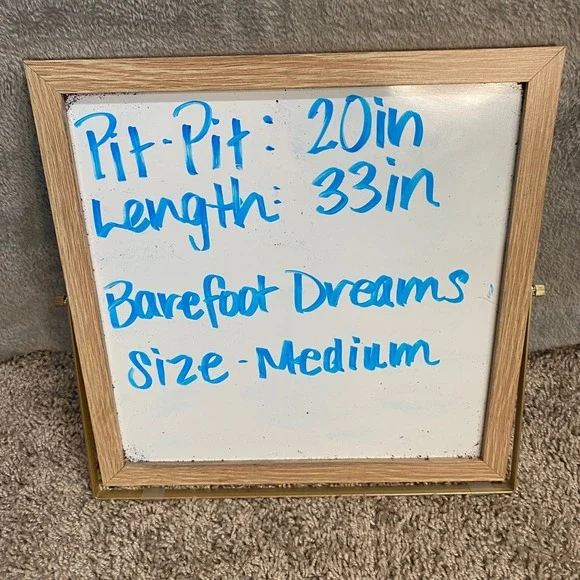 Pit-Pit: 20in
Length: 33in
Barefoot Dreams
Size-Medium